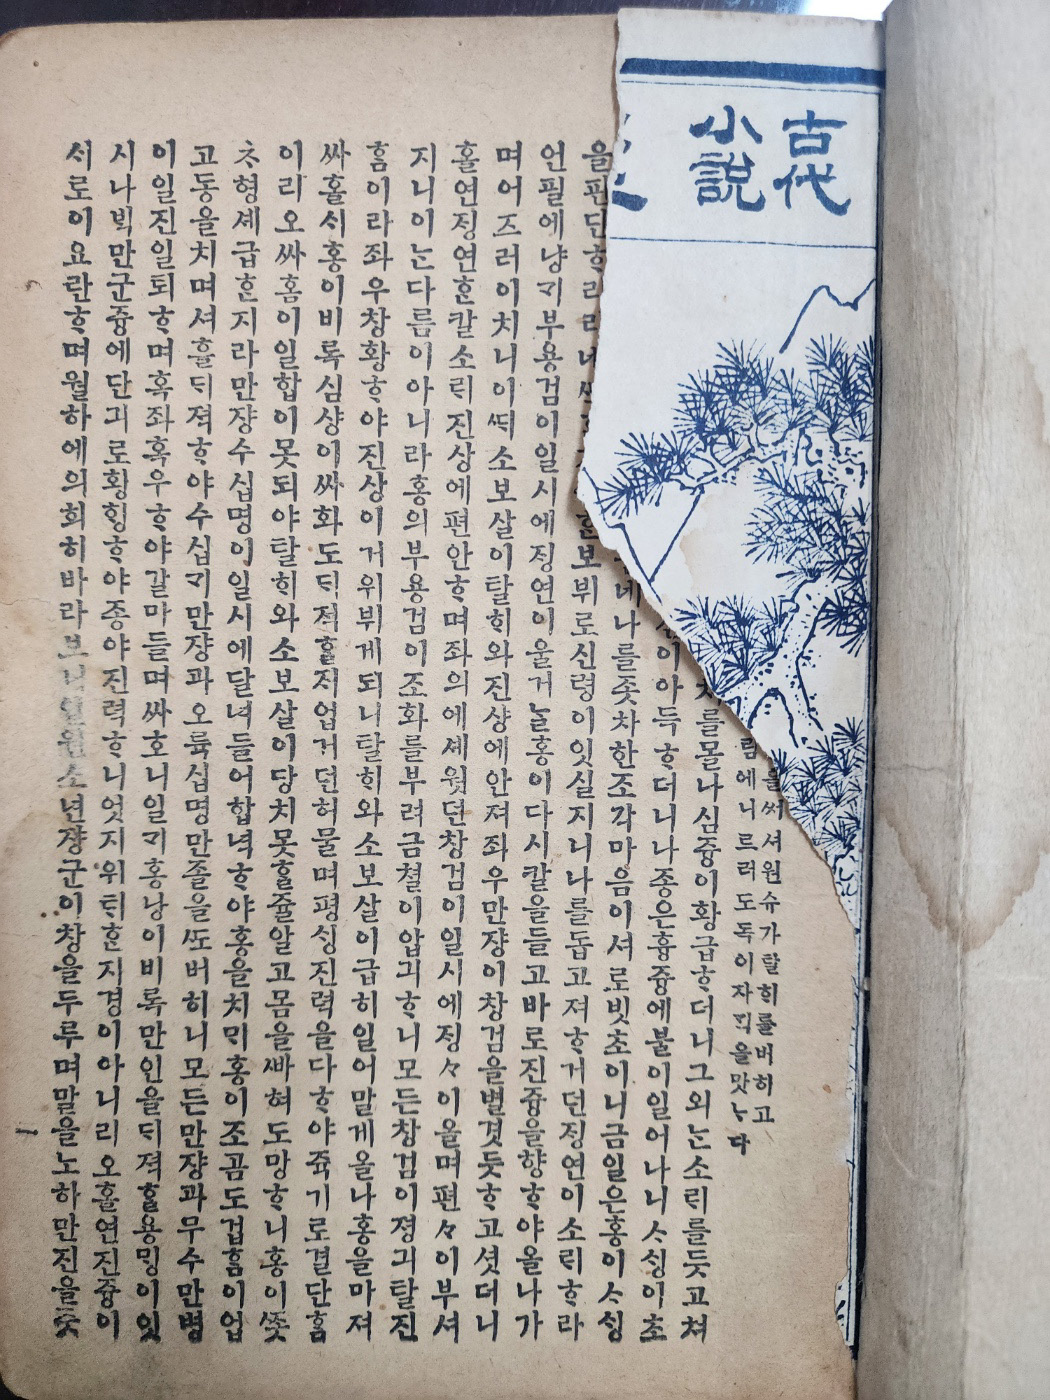 古代
小說
를써셔원슈가탈ᄒᆡ를버히고
림에니르러도독이자ᄀᆡ을맛ᄂᆞ다
를몰나심즁이황급ᄒᆞ더니그외ᄂᆞᆫ소ᄅᆡ를듯고쳐
이아득ᄒᆞ더니나죵은흉즁에불이일어나니ᄉᆞᄉᆡᆼ이초
네나를죳차한조각마음이셔로빗초이니금일은홍이ᄉᆞᄉᆡᆼ
을판단ᄒᆞ리라네 보뷔로신령이잇실지니나를돕고져ᄒᆞ거던ᄌᆡᆼ연이소ᄅᆡᄒᆞ라
언필에냥ᄀᆡ부용검이일시에ᄌᆡᆼ연이울거ᄂᆞᆯ홍이다시칼을들고바로진즁을향ᄒᆞ야올나가
며어즈러이치니이ᄯᆡ소보살이탈ᄒᆡ와진샹에안져좌우만쟝이창검을별겻듯ᄒᆞ고셧더니
홀연ᄌᆡᆼ연ᄒᆞᆫ칼소ᄅᆡ진상에편안ᄒᆞ며좌의에셰웟던창검이일시에ᄌᆡᆼ々이울며편々이부셔
지니이ᄂᆞᆫ다름이아니라홍의부용검이조화를부려금쳘이압긔ᄒᆞ니모든창검이졍긔탈진
홈이라좌우창황ᄒᆞ야진상이거위뷔게되니탈ᄒᆡ와소보살이급히일어말게올나홍을마져
싸홀ᄉᆡ홍이비록심샹이싸화도ᄃᆡ적ᄒᆞᆯ지업거던허물며평ᄉᆡᆼ진력을다ᄒᆞ야쥭기로결단홈
이리오싸홈이일합이못되야탈ᄒᆡ와소보살이당치못ᄒᆞᆯ줄알고몸을ᄲᅡ혀도망ᄒᆞ니홍이ᄶᅩᆺ
ᄎᆞ형셰급ᄒᆞᆫ지라만쟝수십명이일시에달녀들어합녁ᄒᆞ야홍을치ᄆᆡ홍이조곰도겁홈이업
고동을치며셔흘ᄃᆡ젹ᄒᆞ야수십ᄀᆡ만쟝과오륙십명만졸을ᄯᅩ버히니모든만쟝과무수만병
이일진일퇴ᄒᆞ며혹좌혹우ᄒᆞ야갈마들며싸호니일ᄀᆡ홍낭이비록만인을ᄃᆡ젹ᄒᆞᆯ용ᄆᆡᆼ이잇
시나ᄇᆡᆨ만군즁에단긔로황ᄒᆡᆼᄒᆞ야죵야진력ᄒᆞ니엇지위ᄐᆡᄒᆞᆫ지경이아니리오홀연진즁이
서로이요란ᄒᆞ며월하에의희히바라보니일원소년쟝군이창을두루며말을노하만진을ᄶᅩᆺ